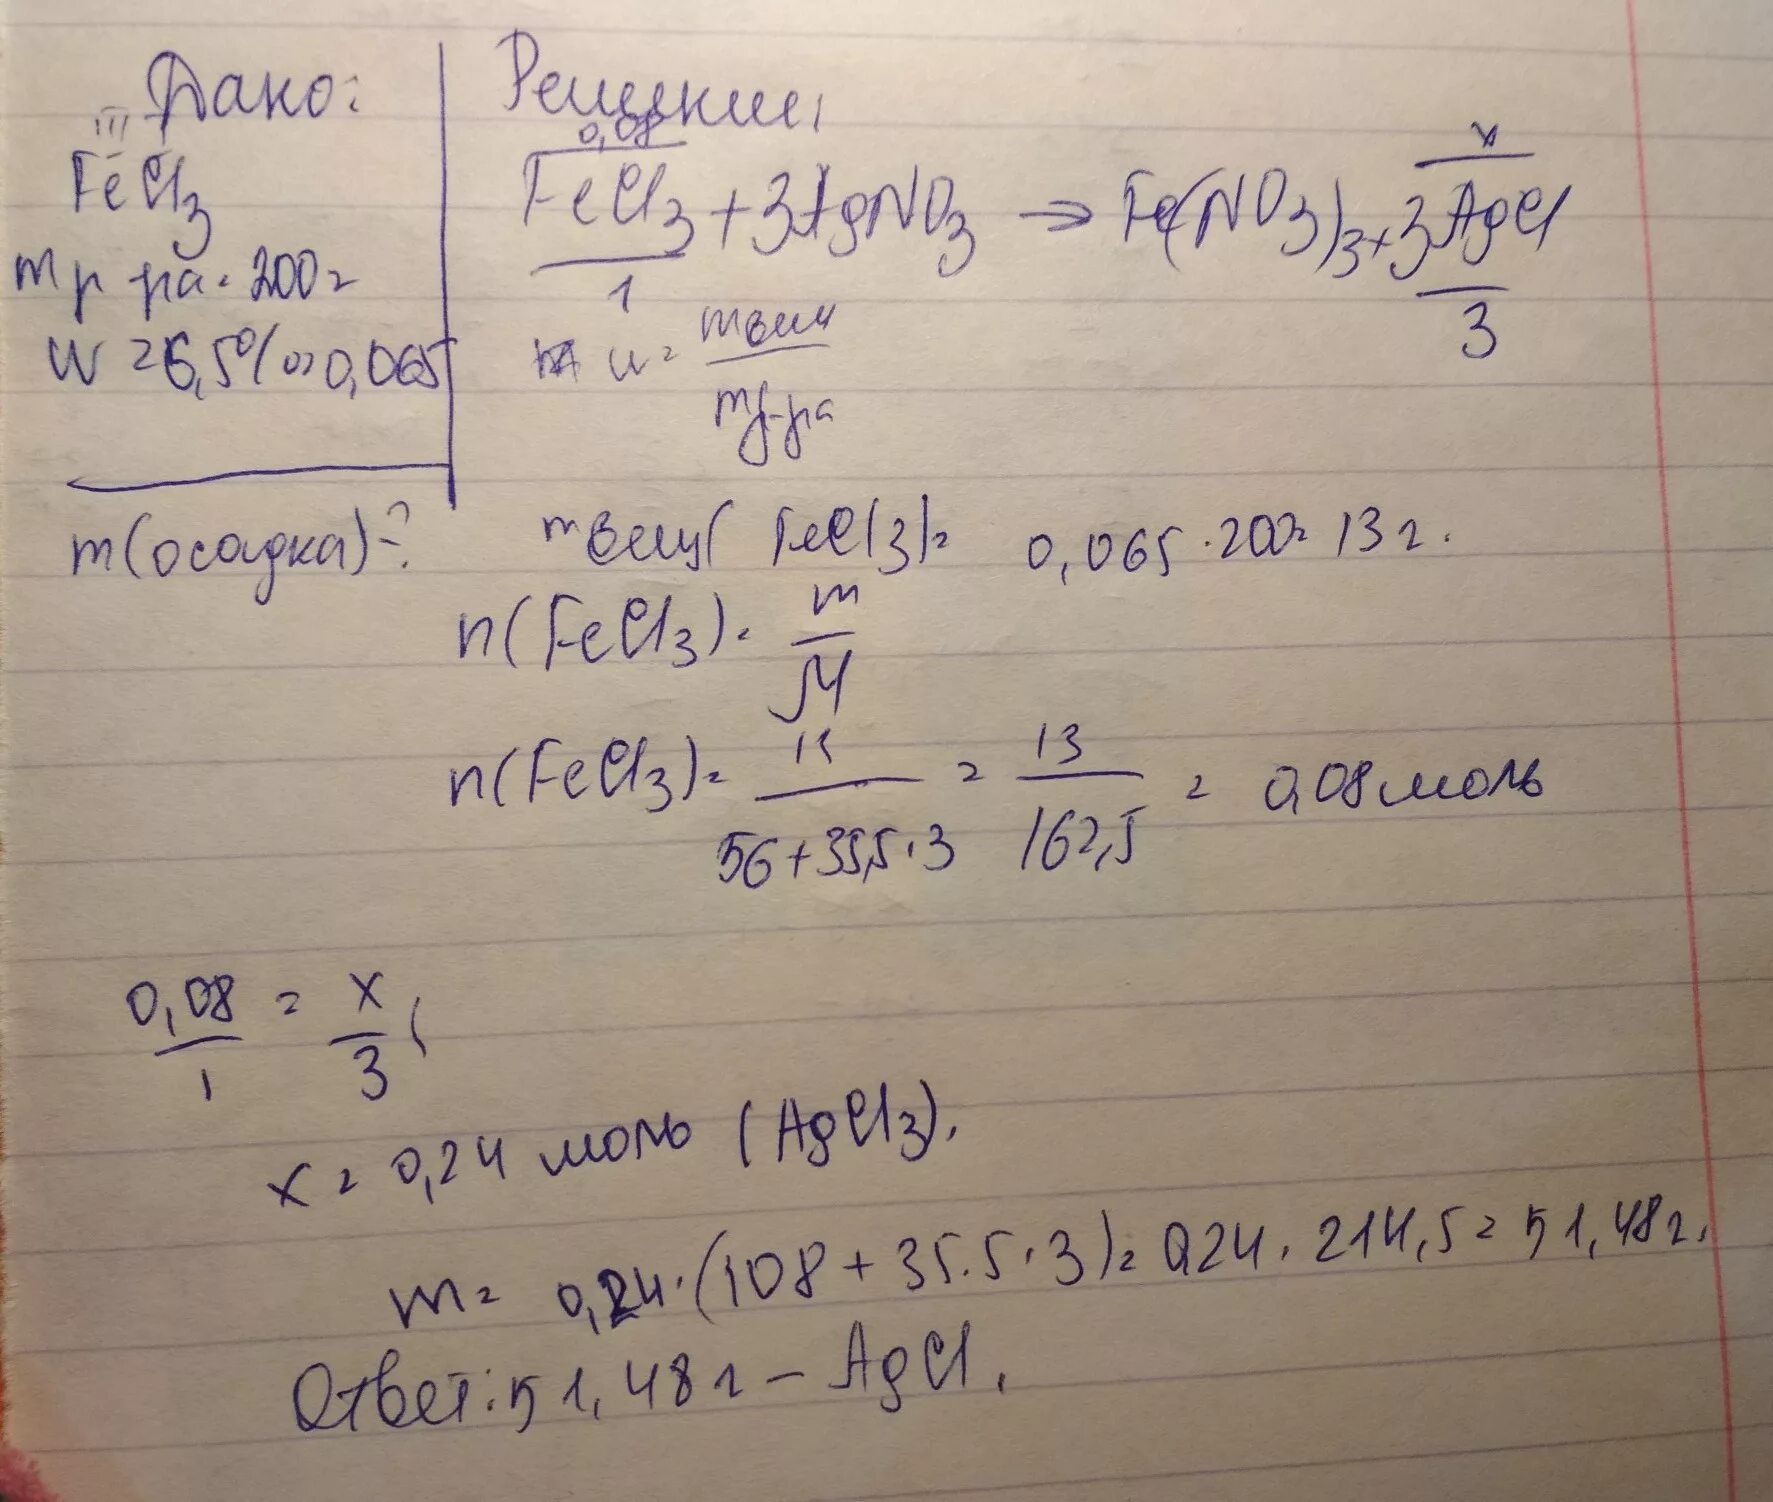 Дано:
III I
FeCl3
m р-ра = 200 г
W = 6,5% = 0,065
m(осадка) - ?
Решение:
0,08 x
FeCl3 + 3AgNO3 → Fe(NO3)3 + 3AgCl
1 3
w = m вещ / m р-ра
m вещ (FeCl3) = 0,065 · 200 = 13 г.
n(FeCl3) = m / M
n(FeCl3) = 13 / 56 + 35,5 · 3 = 13 / 162,5 = 0,08 моль
0,08 / 1 = x / 3
x = 0,24 моль (AgCl3).
m = 0,24 · (108 + 35.5 · 3) = 0,24 · 214,5 = 51,48 г.
Ответ: 51,48 г - AgCl.